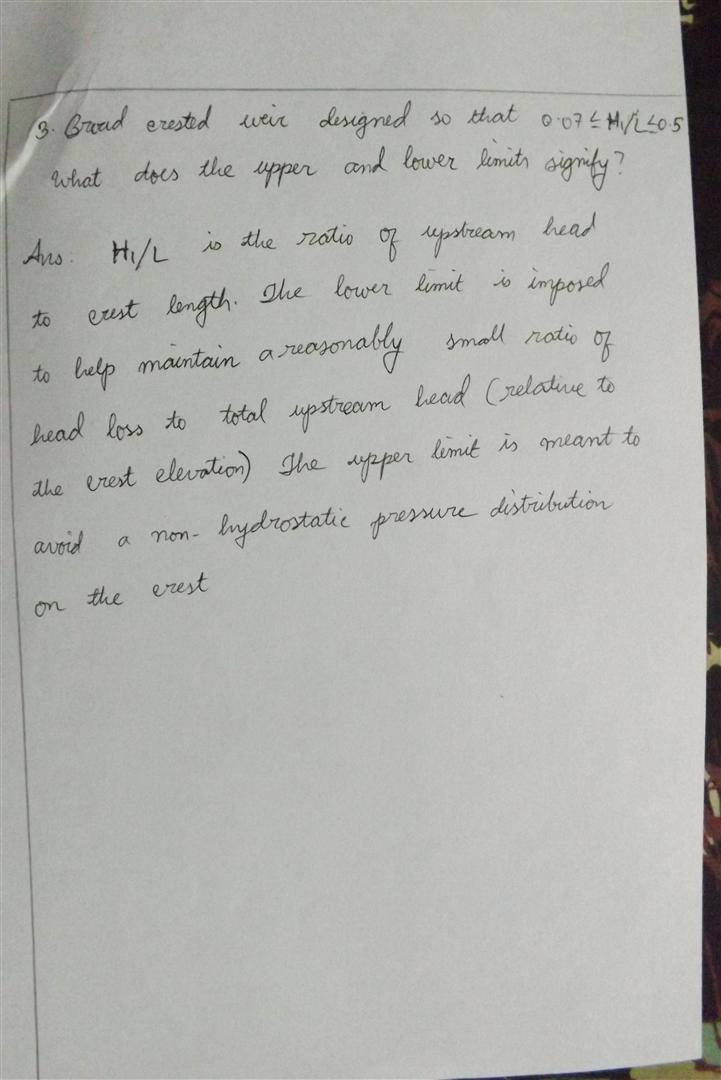 3. Broad crested weir designed so that 0.07 ≤ H₁/L ≤ 0.5
What does the upper and lower limits signify?
Ans: H₁/L is the ratio of upstream head
to crest length. The lower limit is imposed
to help maintain a reasonably small ratio of
head loss to total upstream head (relative to
the crest elevation) The upper limit is meant to
avoid a non-hydrostatic pressure distribution
on the crest